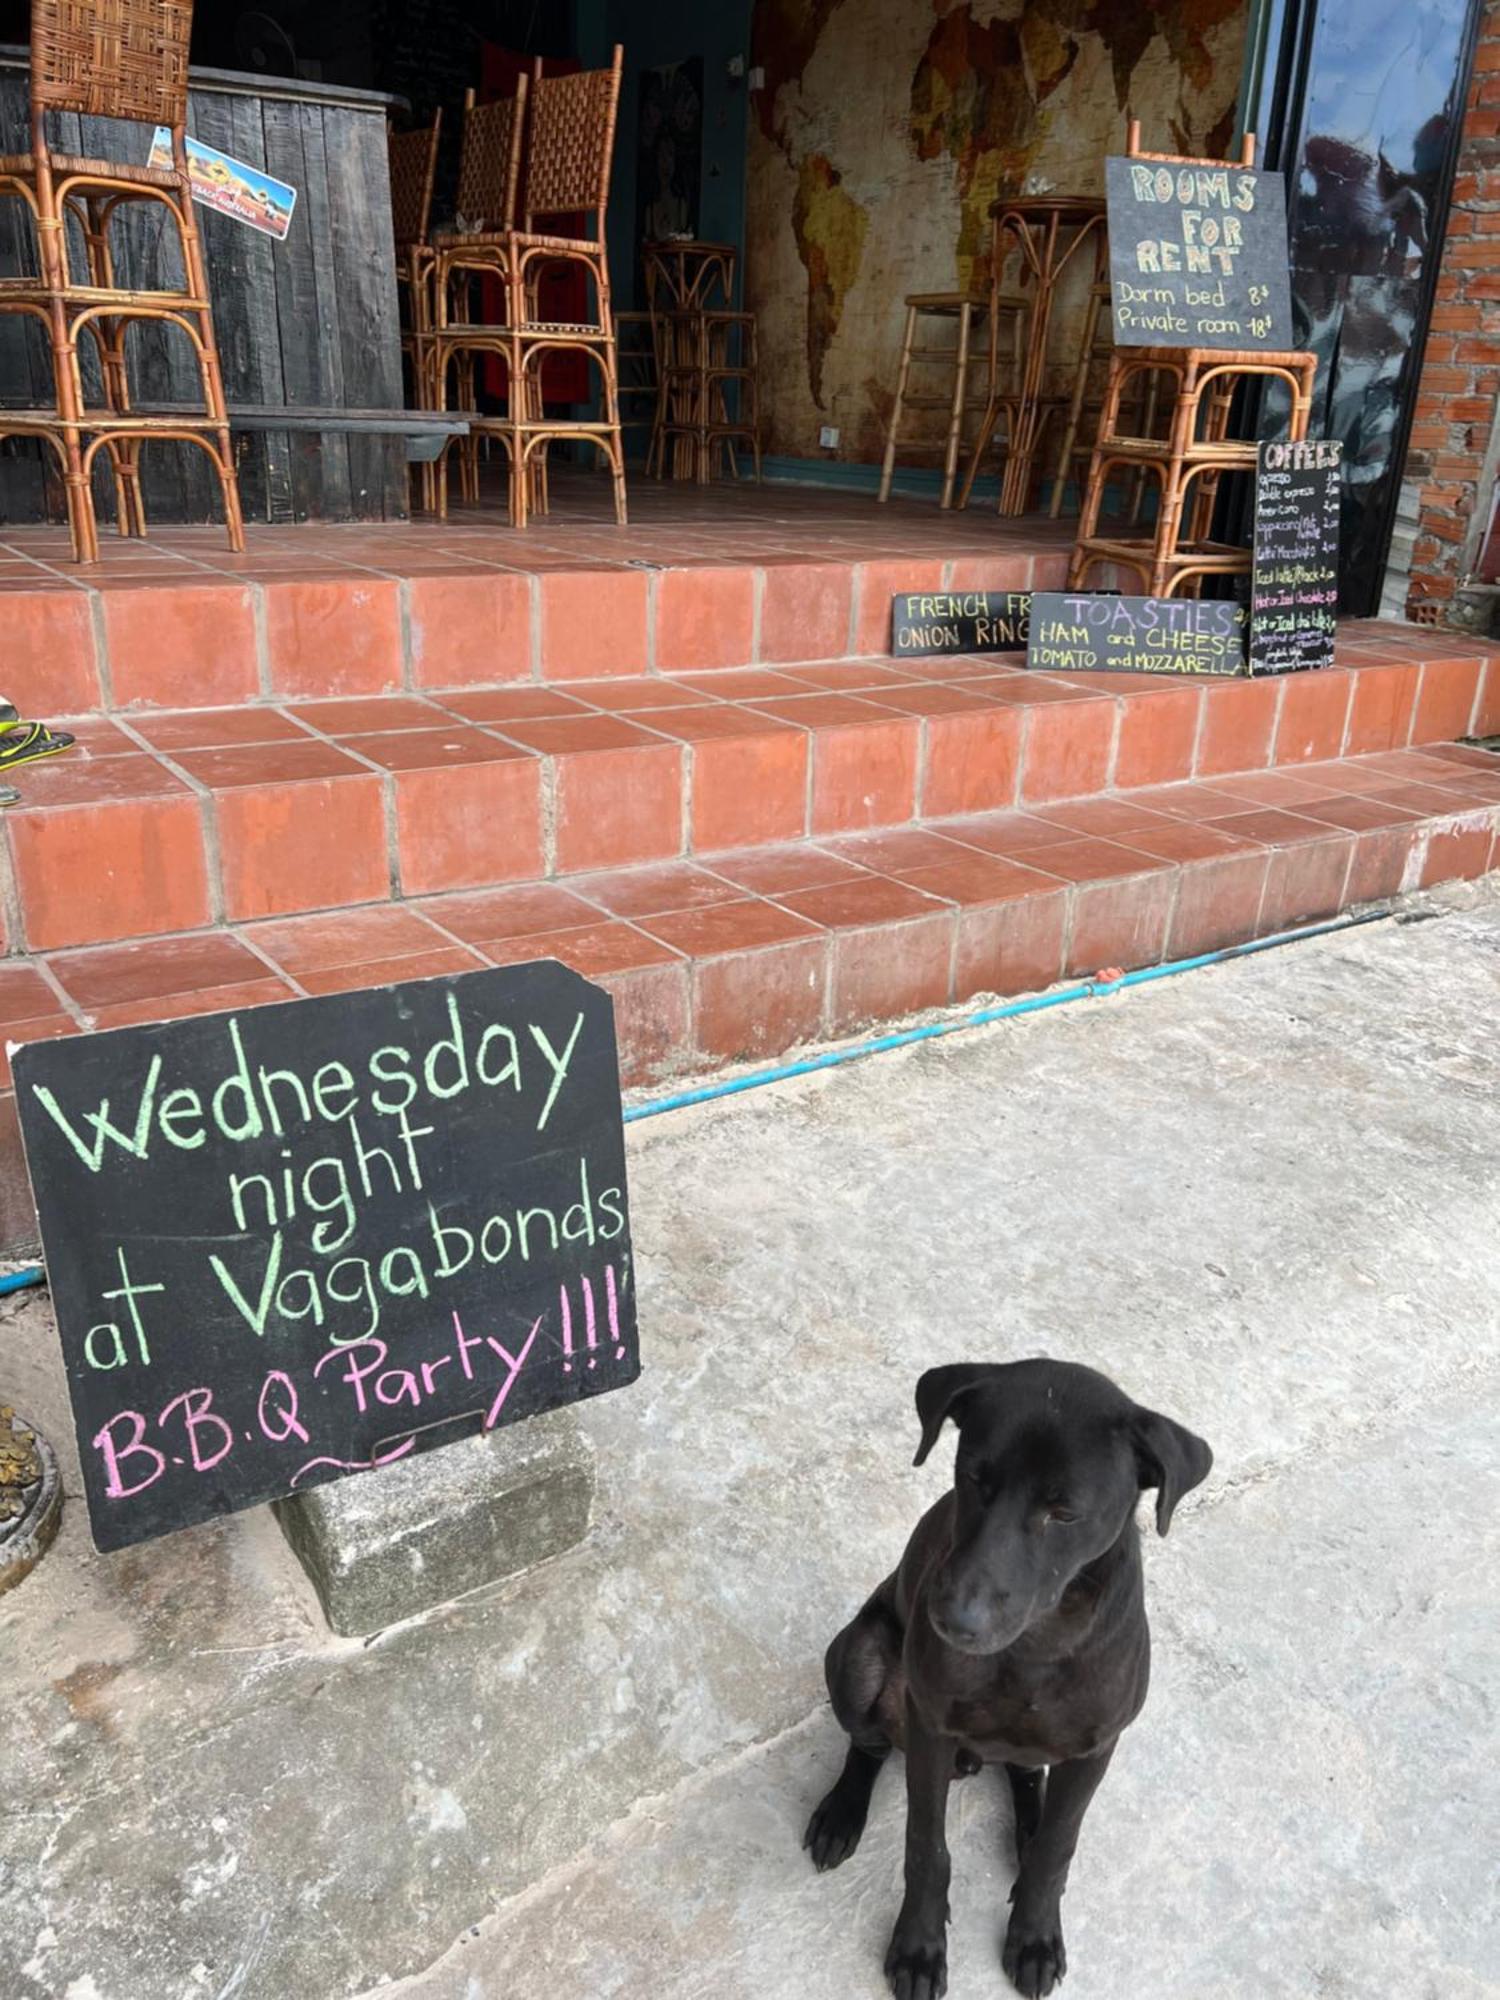 ROOMS
FOR
RENT
Dorm bed 8$
Private room 18$
COFFEES
espresso
Double expresso
Americano
Iced latte/Black
Hot or Iced Chocolate
FRENCH FR
ONION RING
TOASTIES
HAM and CHEESE
TOMATO and MOZZARELLA
Wednesday
night
at Vagabonds
B.B.Q Party!!!